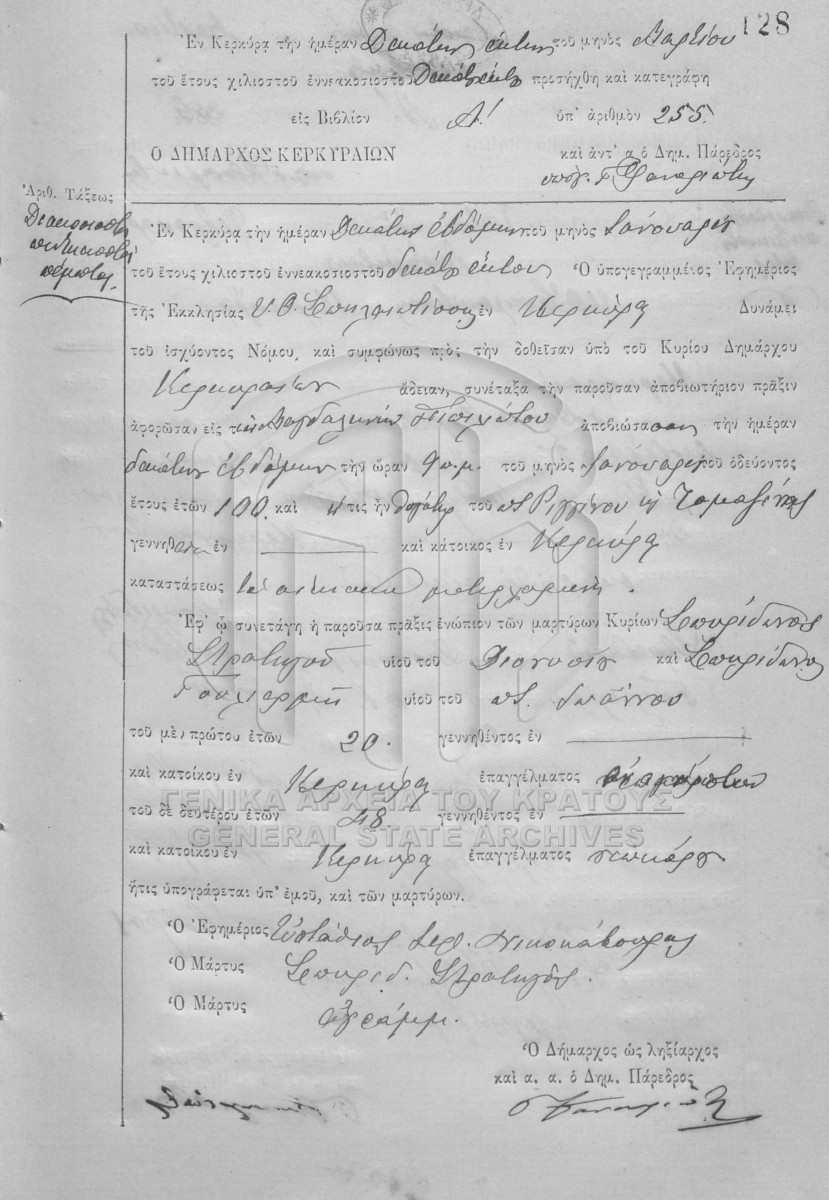 128
Ἐν Κερκύρᾳ τὴν ἡμέραν Δεκάτην ἕκτην τοῦ μηνὸς Μαρτίου
τοῦ ἔτους χιλιοστοῦ ἐννεακοσιοστοῦ Δεκάτου ἕκτου προσήχθη καὶ κατεγράφη
εἰς Βιβλίον Α! ὑπ' ἀριθμὸν 255.
Ὁ ΔΗΜΑΡΧΟΣ ΚΕΡΚΥΡΑΙΩΝ καὶ ἀντ' α ὁ Δημ. Πάρεδρος
Ἀριθ. Τάξεως
Διακοσιοστὴ
πεντηκοστὴ
πέμπτη.
Ἐν Κερκύρᾳ τὴν ἡμέραν Δεκάτην ἑβδόμην τοῦ μηνὸς Ἰανουαρίου
τοῦ ἔτους χιλιοστοῦ ἐννεακοσιοστοῦ δεκάτου ἕκτου Ὁ ὑπογεγραμμένος Ἐφημέριος
τῆς Ἐκκλησίας Υ. Θ. Σπηλιωτίσσης ἐν Κερκύρᾳ Δυνάμει
τοῦ ἰσχύοντος Νόμου, καὶ συμφώνως πρὸς τὴν δοθεῖσαν ὑπὸ τοῦ Κυρίου Δημάρχου
Κερκυραίων ἄδειαν, συνέταξα τὴν παροῦσαν ἀποβιωτήριον πρᾶξιν
ἀφορῶσαν εἰς τὴν Μαγδαληνὴν ἀποβιώσασαν τὴν ἡμέραν
δεκάτην ἑβδόμην τὴν ὥραν 9 π.μ. τοῦ μηνὸς Ἰανουαρίου τοῦ ὁδεύοντος
ἔτους ἐτῶν 100. καὶ ἥτις ἦν θυγάτηρ τοῦ ποτὲ Ρηγγίνου
γεννηθεῖσα ἐν καὶ κάτοικος ἐν Κερκύρᾳ
καταστάσεως
Ἐφ' ᾧ συνετάγη ἡ παροῦσα πρᾶξις ἐνώπιον τῶν μαρτύρων Κυρίων Σπυρίδωνος
Στρατηγοῦ υἱοῦ τοῦ Διονυσίου καὶ Σπυρίδωνος
υἱοῦ τοῦ ποτὲ Ἰωάννου
τοῦ μὲν πρώτου ἐτῶν 20. γεννηθέντος ἐν
καὶ κατοίκου ἐν Κερκύρᾳ ἐπαγγέλματος
τοῦ δὲ δευτέρου ἐτῶν 48 γεννηθέντος ἐν
καὶ κατοίκου ἐν Κερκύρᾳ ἐπαγγέλματος
ἥτις ὑπογράφεται ὑπ' ἐμοῦ, καὶ τῶν μαρτύρων.
Ὁ Ἐφημέριος Εὐστάθιος
Ὁ Μάρτυς Σπυριδ. Στρατηγός.
Ὁ Μάρτυς ἀγράμμ.
Ὁ Δήμαρχος ὡς ληξίαρχος
καὶ α. α. ὁ Δημ. Πάρεδρος
ΓΕΝΙΚΑ ΑΡΧΕΙΑ ΤΟΥ ΚΡΑΤΟΥΣ
GENERAL STATE ARCHIVES